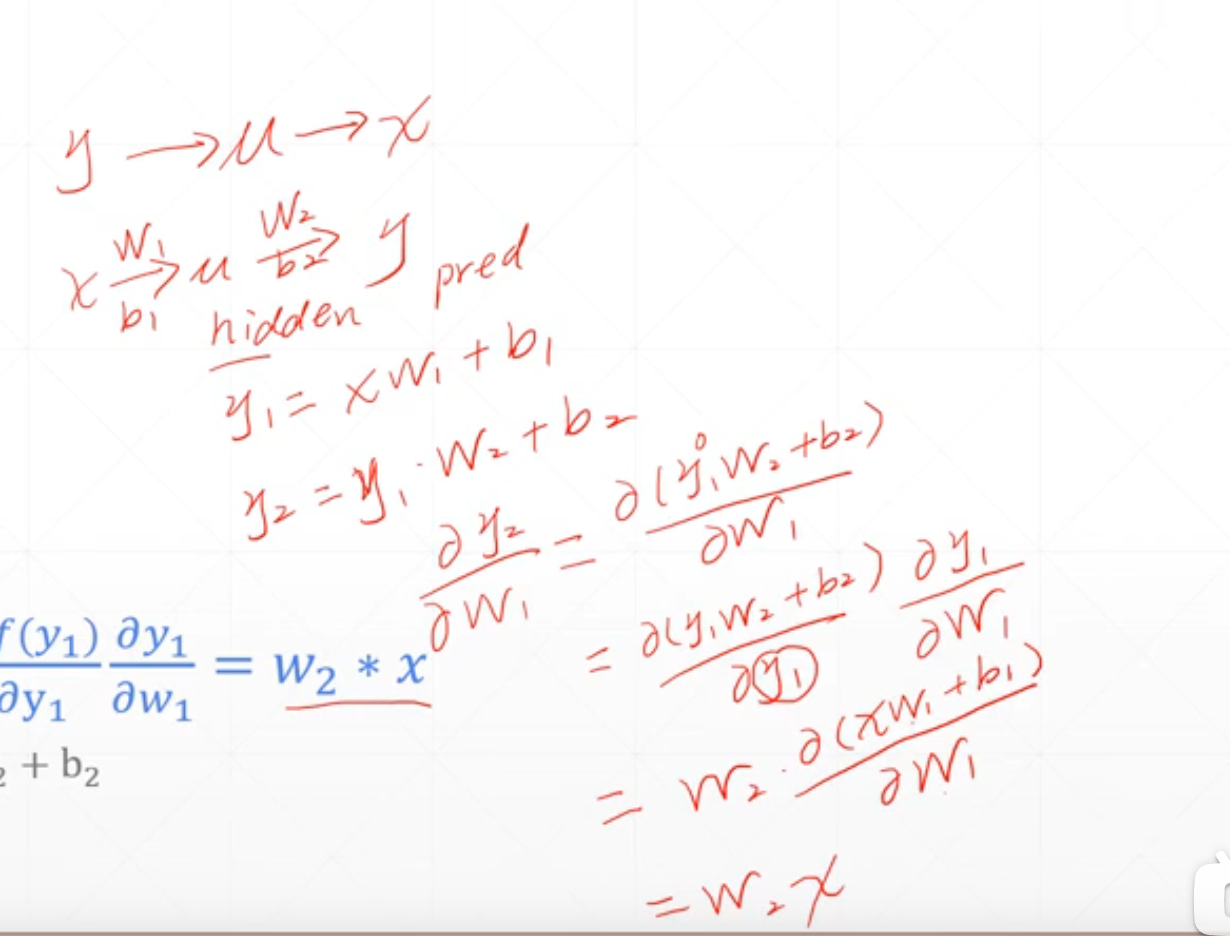 y → u → x
x W₁→b₁ u W₂→b₂ y pred
hidden
y₁ = xW₁ + b₁
y₂ = y₁ · W₂ + b₂
∂y₂/∂W₁ = ∂(y₁W₂ + b₂)/∂W₁
= ∂(y₁W₂ + b₂)/∂y₁ ∂y₁/∂W₁
f(y₁)/∂y₁ ∂y₁/∂w₁ = w₂ * x
= W₂ · ∂(xW₁ + b₁)/∂W₁
₂ + b₂
= W₂x